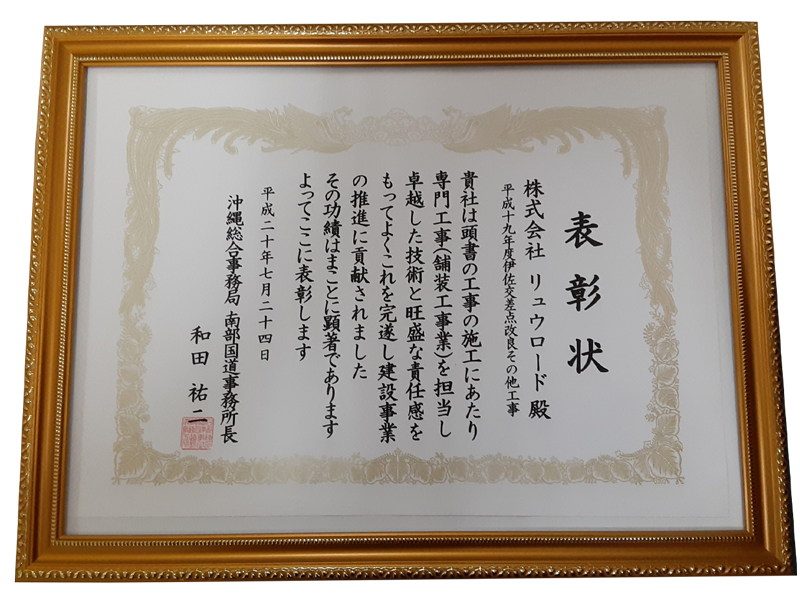 表彰状
株式会社 リュウロード 殿
平成十九年度伊佐交差点改良その他工事
貴社は頭書の工事の施工にあたり
専門工事(舗装工事業)を担当し
卓越した技術と旺盛な責任感を
もってよくこれを完遂し建設事業
の推進に貢献されました
その功績はまことに顕著であります
よってここに表彰します
平成二十年七月二十四日
沖縄総合事務局 南部国道事務所長
和田 祐二